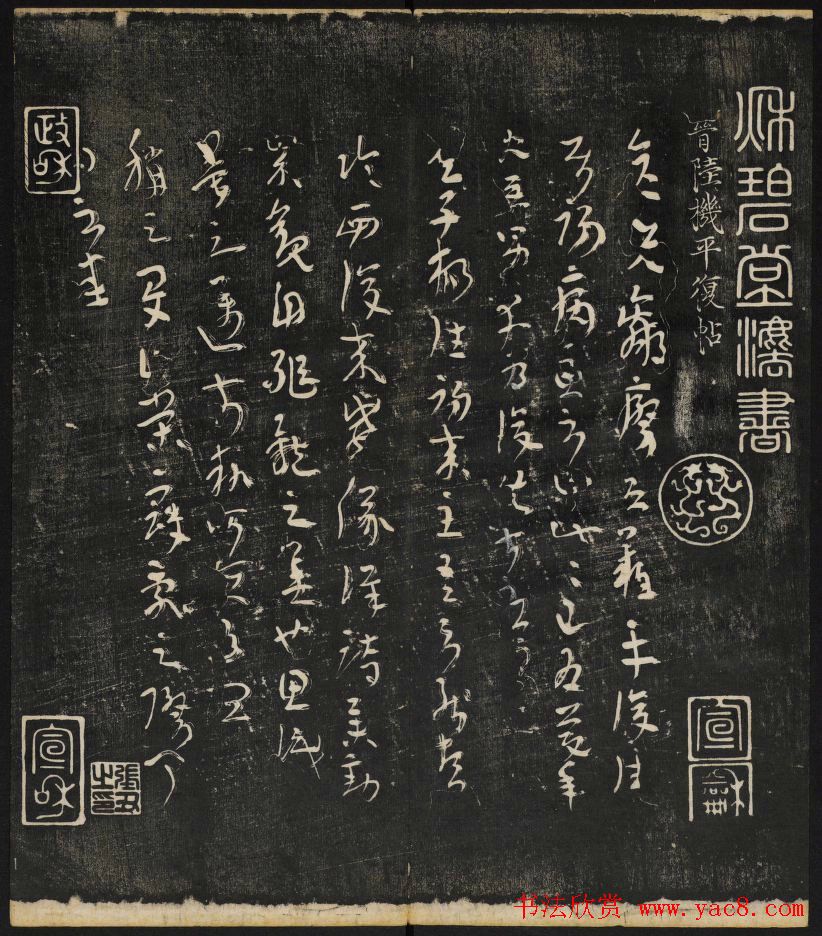 秌碧堂灋書
晉陸機平復帖
彦先羸瘵恐難平復往
屬初病慮不止此此已為慶承
使唯男幸為復失前憂耳
吴子楊往初來主吾不能盡
臨西復來威儀詳跱舉動
成觀自軀體之美也思識
量之邁前執所恒有宜
稱之夏伯榮寇亂之際聞
問不悉
宣龢
政和
宣和
張丑之印
书法欣赏 www.yac8.com